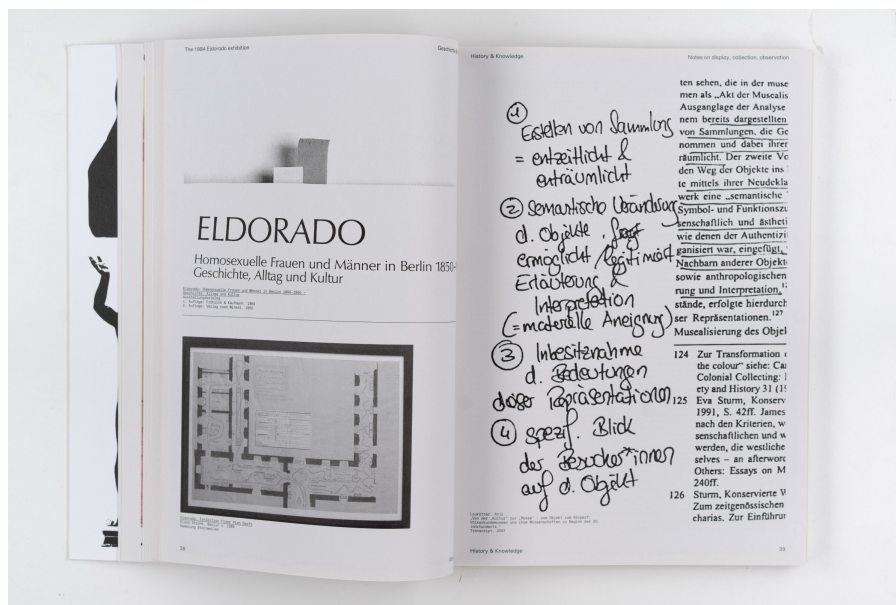 The 1984 Eldorado exhibition
ELDORADO
Homosexuelle Frauen und Männer in Berlin 1850-
Geschichte, Alltag und Kultur
38
History & Knowledge
Notes on display, collection, observation
1
Erstellen von Sammlung
= entzeitlicht &
enträumlicht
2 semantische Veränderung
d. Objekte,
ermöglicht / legitimiert
Erläuterung &
Interpretation
(= materielle Aneignung)
3 Inbesitznahme
d. Bedeutungen
dieser Repräsentationen
4 spezif. Blick
der Besucher*innen
auf d. Objekt
ten sehen, die in der muse
men als „Akt der Musealis
Ausganglage der Analyse
nem bereits dargestellten
von Sammlungen, die Ge
nommen und dabei ihrer
räumlicht. Der zweite Vo
den Weg der Objekte ins
te mittels ihrer Neudekla
werk eine „semantische
Symbol- und Funktionszu
senschaftlich und ästheti
wie denen der Authentizi
ganisiert war, eingefügt,
Nachbarn anderer Objekt
sowie anthropologischen
rung und Interpretation,
stände, erfolgte hierdurch
ser Repräsentationen.127
Musealisierung des Objek
124 Zur Transformation
the colour“ siehe: Ca
Colonial Collecting:
ety and History 31 (19
125 Eva Sturm, Konserv
1991, S. 42ff. James
nach den Kriterien, w
senschaftlichen und w
werden, die westliche
selves – an afterword
Others: Essays on M
240ff.
126 Sturm, Konservierte W
Zum zeitgenössischen
charias. Zur Einführur
History & Knowledge
39